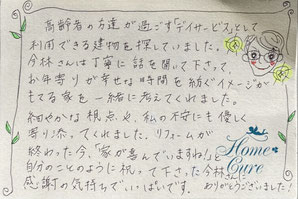 高齢者の方達が過ごす「デイサービス」として
利用できる建物を探していました。
今林さんは丁寧に話を聞いて下さって
お年寄りが幸せな時間を紡ぐイメージが
もてる家を一緒に考えてくれました。
細やかな視点や、私の不安にも優しく
寄り添ってくれました。リフォームが
終わった今、「家が喜んでいますね!」と
自分のことのように祝って下さった今林さんに
感謝の気持ちでいっぱいです。ありがとうございました!
Home
Cure